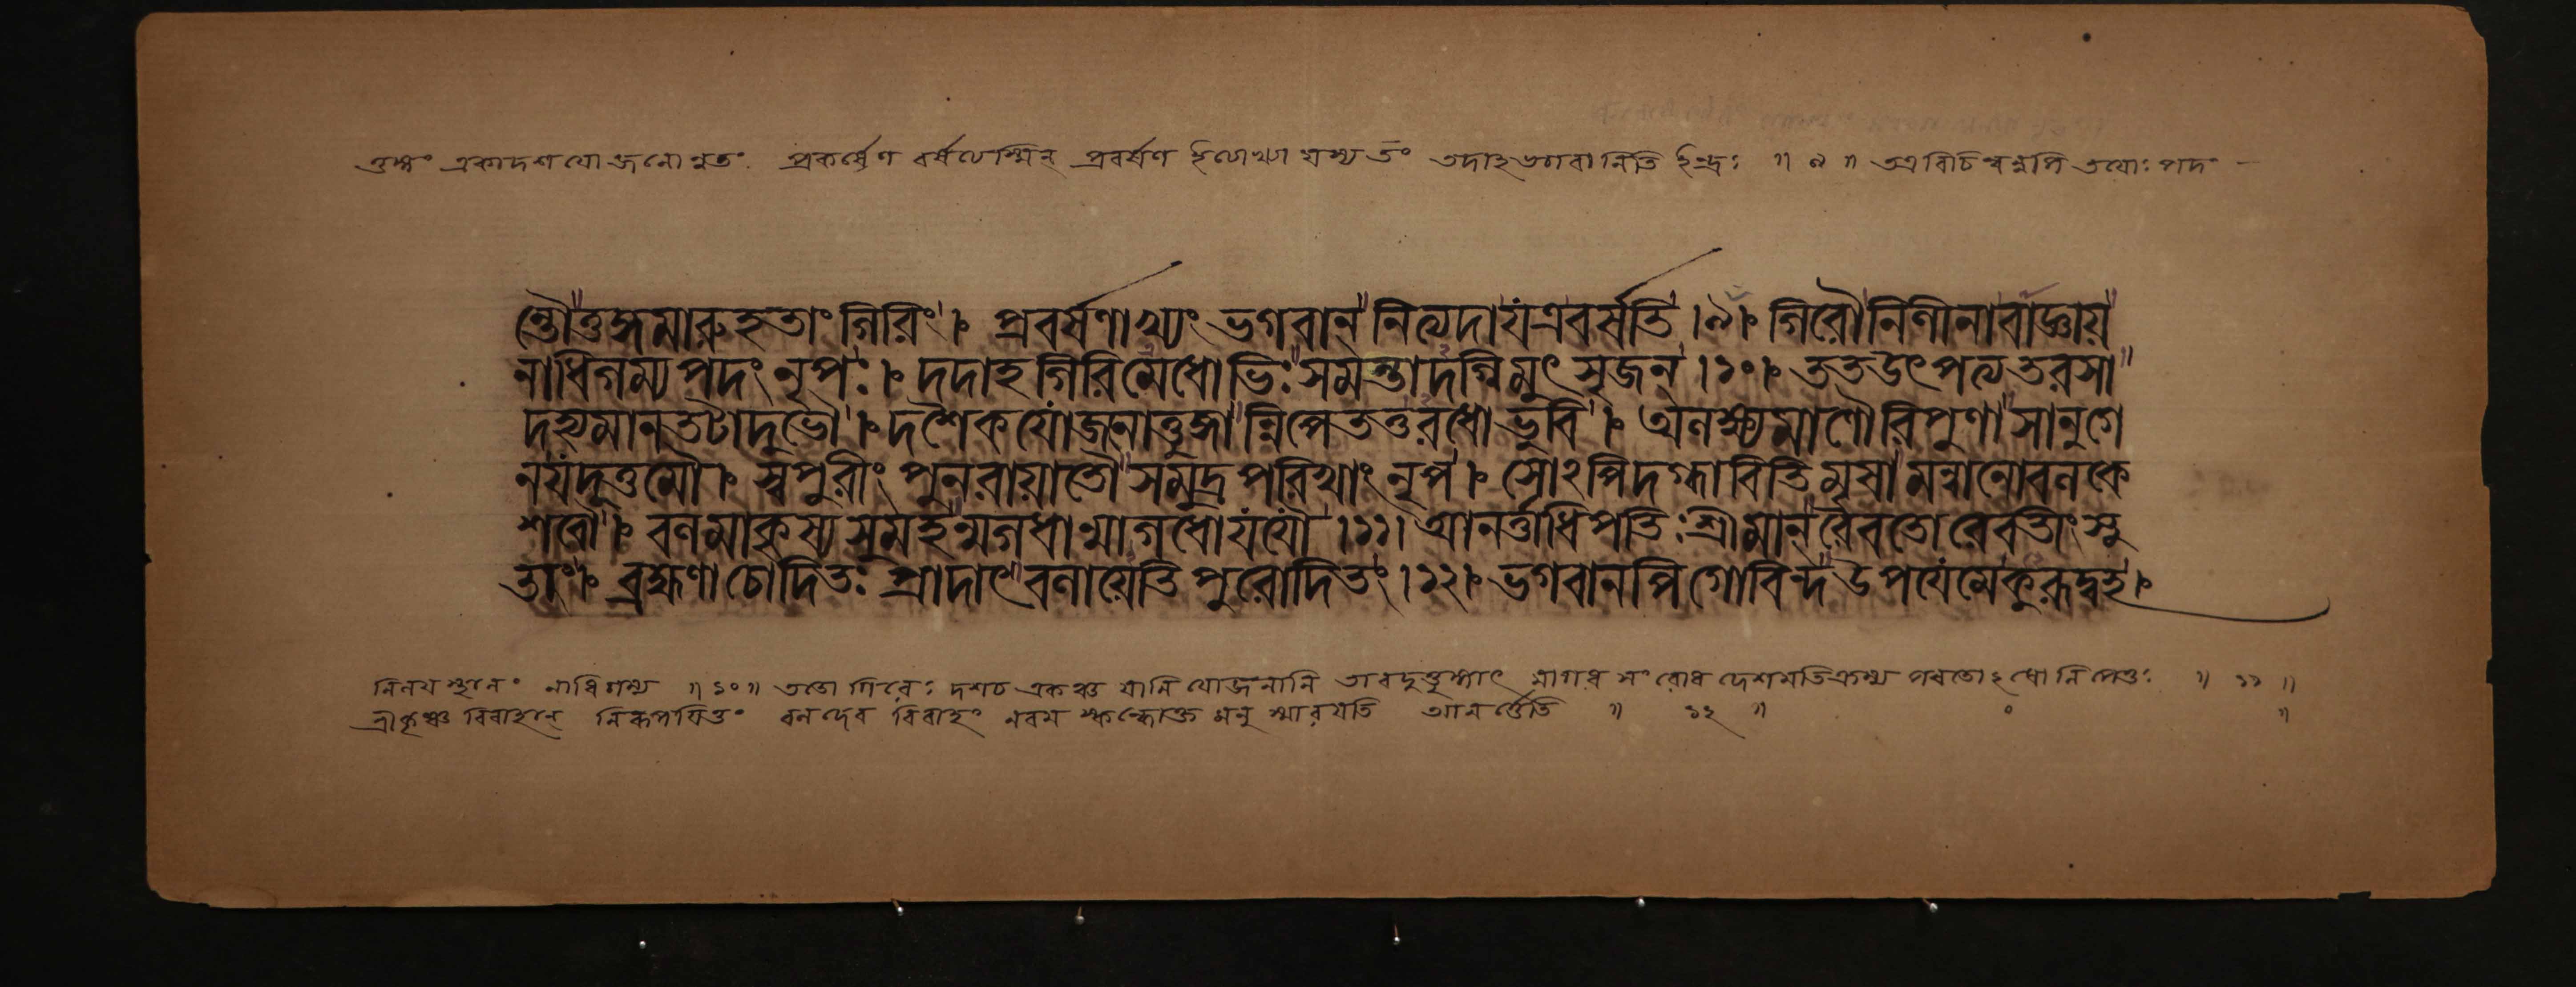 তুঙ্গং একাদশযোজনোন্নতং প্রকর্ষেণ বর্ষত্যস্মিন্ প্রবর্ষণ ইত্যাখ্যা যস্য তং তদাহ ভগবানিতি ইন্দ্রঃ ॥ ৯ ॥ তত্র বিচিন্বন্নপি তয়োঃ পদং
ন্তৌতুঙ্গমারুহতাং গিরিং । প্রবর্ষণাখ্যং ভগবান্ নিত্যদাযংত্রবর্ষতি ।৯। গিরৌনিলীনাবাজ্ঞায়
নাধিগম্য পদং নৃপঃ । দদাহ গিরিমেধোভিঃ সমন্তাদগ্নিমুৎসৃজন্ ।১০। ততউৎপত্য তরসা
দহ্যমানতটাদুভৌ । দশৈকযোজনাত্তুঙ্গান্নিপেততুরধোভুবি । অলক্ষ্যমাণৌরিপুণা সানুগে
নযদূত্তমৌ । স্বপুরীং পুনরায়াতৌ সমুদ্রপরিখাং নৃপ । সোঽপিদগ্ধাবিতিমৃষা মন্বানোবলকে
শবৌ । বলমাকৃষ্য সুমহন্মগধান্মাগধোযযৌ ।১১। আনর্ত্তাধিপতিঃ শ্রীমান্ রৈবতোরেবতীংসু
তাং । ব্রহ্মণা চোদিতঃ প্রাদাৎ বলায়েতি পুরোদিতং ।১২। ভগবানপি গোবিন্দ উপযেমেকুরূদ্বহ ।
নিলয়স্থানং নাধিগম্য ॥ ১০ ॥ ততো গিরেঃ দশচ একঞ্চ যানি যোজনানি তাবদুত্তুঙ্গাৎ মাগধ সংরোধ দেশমতিক্রম্য পরতোঽধো নিপেতুঃ ॥ ১১ ॥
শ্রীকৃষ্ণ বিবাহান্ নিরূপয়িতুং বলদেব বিবাহং নবম স্কন্ধোক্ত মনুস্মারয়তি আনর্ত্তেতি ॥ ১২ ॥ ০ ॥